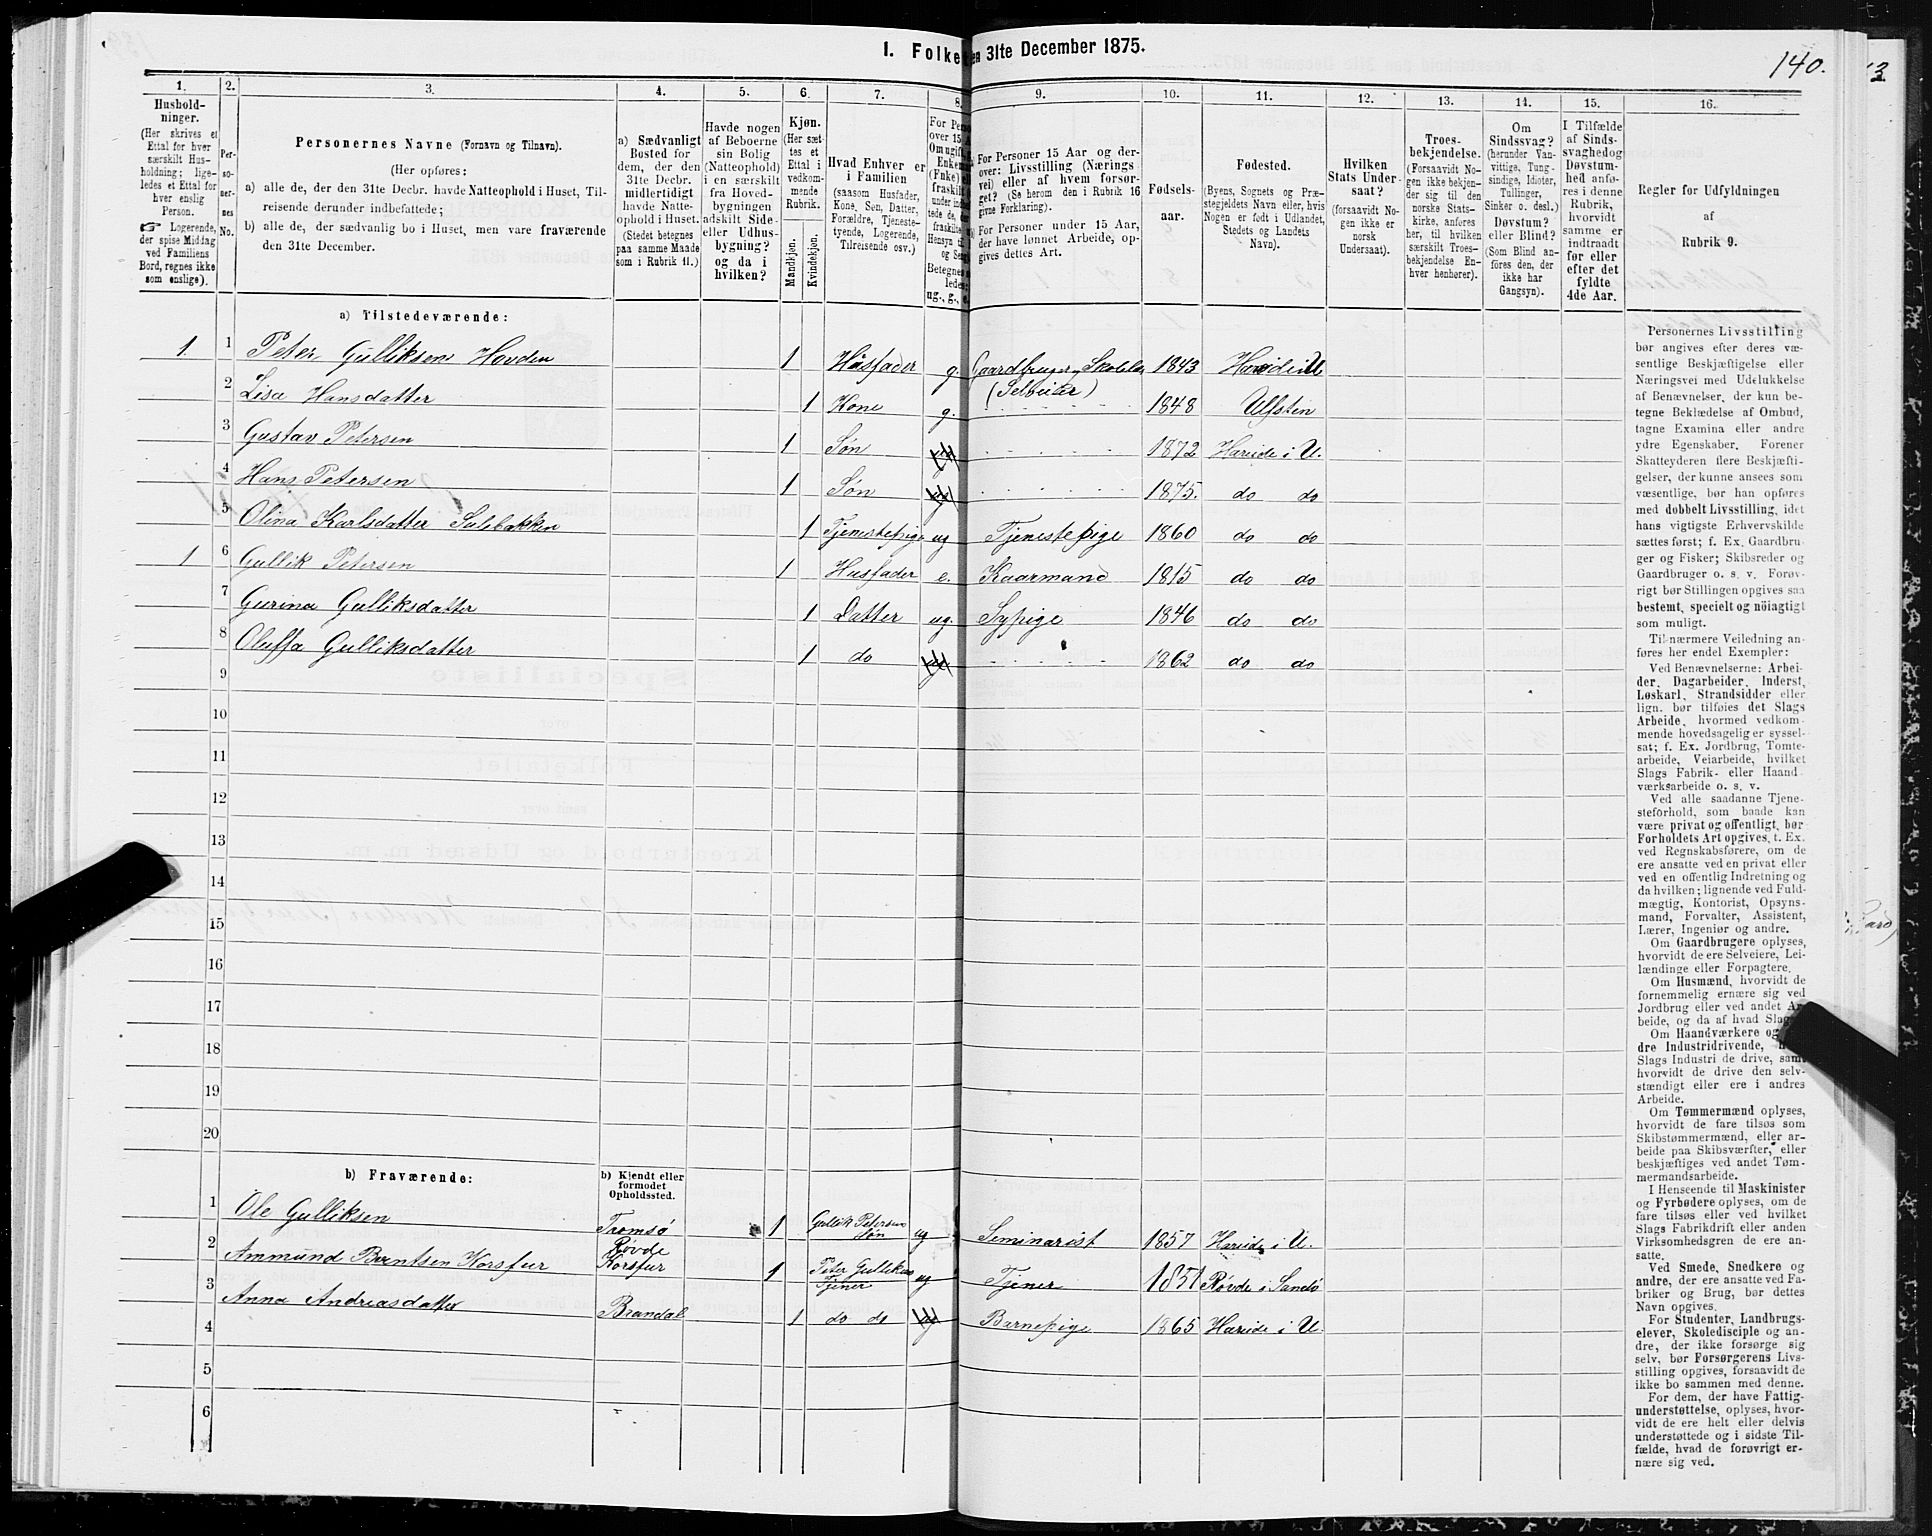 I. Folke en 31te December 1875.
140.
1. 2. 3. 4. 5. 6. 7. 8. 9. 10. 11. 12. 13. 14. 15. 16.
Hushold-
ninger.
(Her skrives et
Ettal for hver
særskilt Hus-
holdning; lige-
ledes et Ettal for
hver enslig
Person.
☞ Logerende,
der spise Middag
ved Familiens
Bord, regnes ikke
som enslige).
Per-
so-
ner-
nes
No.
Personernes Navne (Fornavn og Tilnavn).
(Her opføres:
a) alle de, der den 31te Decbr. havde Natteophold i Huset, Til-
reisende derunder indbefattede;
b) alle de, der sædvanlig bo i Huset, men vare fraværende
den 31te December.
a) Sædvanligt
Bosted for
dem, der den
31te Decbr.
midlertidigt
havde Natte-
ophold i Huset.
(Stedet betegnes
paa samme Maade
som i Rubrik 11.)
Havde nogen
af Beboerne
sin Bolig
(Natteophold)
i en særskilt
fra Hoved-
bygningen
adskilt Side-
eller Udhus-
bygning?
og da i
hvilken?
Kjøn.
(Her sæt-
tes et
Ettal i
vedkom-
mende
Rubrik.
Mandkjøn.
Kvindekjøn.
Hvad Enhver er
i Familien
(saasom Husfader,
Kone, Søn, Datter,
Forældre, Tjeneste-
tyende, Logerende,
Tilreisende osv.)
For Pers
over 15 A
Om ugift,
Enkem
(Enke) el
fraskilt
ug., g., e.
For Personer 15 Aar og der-
over: Livsstilling (Nærings-
vei) eller af hvem forsør-
get? (Se herom den i Rubrik 16
givne Forklaring).
For Personer under 15 Aar,
der have lønnet Arbeide, op-
gives dettes Art.
Fødsels-
aar.
Fødested.
(Byens, Sognets og Præ-
stegjeldets Navn eller, hvis
Nogen er født i Udlandet,
Stedets og Landets
Navn).
Hvilken
Stats Under-
saat?
(forsaavidt No-
gen ikke er
norsk
Undersaat).
Troes-
bekjendelse.
(Forsaavidt No-
gen ikke bekjen-
der sig til den
norske Stats-
kirke, anføres
her, til hvilken
særskilt Troes-
bekjendelse En-
hver henhører).
Om
Sindssvag?
(herunder Van-
vittige, Tung-
sindige, Idioter,
Tullinger,
Sinker o. desl.)
Døvstum?
eller Blind?
(Som Blind an-
føres den, der
ikke har
Gangsyn).
I Tilfælde
af Sinds-
svaghed og
Døvstum-
hed anfø-
res i denne
Rubrik,
hvorvidt
samme er
indtraadt
før eller
efter det
fyldte
4de Aar.
Regler for Udfyldningen
af
Rubrik 9.
a) Tilstedeværende:
1 1 Peter Gulliksen Hovden 1 Husfader g. Gaardbruger, Skolelæ (Selveier) 1843 Hareid i U
2 Lisa Hansdatter 1 Kone g. 1848 Ulfsten
3 Gustav Petersen 1 Søn ug 1872 Hareide i U.
4 Hans Petersen 1 Søn ug 1875. do do
5 Olina Karlsdatter Sulebakken 1 Tjenestepige ug Tjenestepige 1860 do do
1 6 Gullik Petersen 1 Husfader e. Kaarmand 1815 do do
7 Gurina Gulliksdatter 1 Datter ug. Sypige 1846 do do
8 Oluffa Gulliksdatter 1 do ug. 1862 do do
9
10
11
12
13
14
15
16
17
18
19
20
b) Fraværende:
b) Kjendt eller
formodet
Opholdssted.
1 Ole Gulliksen Tromsø 1 Gullik Petersens Søn ug Seminarist 1857 Hareide i U.
2 Ammund Berntsen Korsfur Røvde Korsfur 1 Peter Gulliksens Tjener ug Tjener 1851 Røvde i Sandø
3 Anna Andreasdatter Brandal 1 do do ug Barnepige 1865 Hareide i U.
4
5
6
Personernes Livsstilling
bør angives efter deres væ-
sentlige Beskjæftigelse eller
Næringsvei med Udelukkelse
af Benævnelser, der kun be-
tegne Beklædelse af Ombud,
tagne Examina eller andre
ydre Egenskaber. Forener
Skatteyderen flere Beskjæfti-
gelser, der kunne ansees som
væsentlige, bør han opføres
med dobbelt Livsstilling, idet
hans vigtigste Erhvervskilde
sættes først; f. Ex. Gaardbru-
ger og Fisker; Skibsreder og
Gaardbruger o. s. v. Forøv-
rigt bør Stillingen opgives saa
bestemt, specielt og nöiagtigt
som muligt.
Til nærmere Veiledning an-
føres her endel Exempler:
Ved Benævnelserne: Arbei-
der, Dagarbeider, Inderst,
Løskarl, Strandsidder eller
lign. bør tilføies det Slags
Arbeide, hvormed vedkom-
mende hovedsagelig er syssel-
sat; f. Ex. Jordbrug, Tomte-
arbeide, Veiarbeide, hvilket
Slags Fabrik- eller Haand-
værksarbeide o. s. v.
Ved alle saadanne Tjene-
steforhold, som baade kan
være privat og offentligt, bør
Forholdets Art opgives, t. Ex.
ved Regnskabsførere, om de
ere ansatte ved en privat eller
ved en offentlig Indretning og
da hvilken; lignende ved Fuld-
mægtig, Kontorist, Opsyns-
mand, Forvalter, Assistent,
Lærer, Ingeniør og andre.
Om Gaardbrugere oplyses,
hvorvidt de ere Selveiere, Lei-
lændinge eller Forpagtere.
Om Husmænd, hvorvidt de
fornemmelig ernære sig ved
Jordbrug eller ved andet Ar-
beide, og da af hvad Slags.
Om Haandværkere og
dre Industridrivende,
Slags Industri de drive, samt
hvorvidt de drive den selv-
stændigt eller ere i andres
Arbeide.
Om Tømmermænd oplyses,
hvorvidt de fare tilsøs som
Skibstømmermænd, eller ar-
beide paa Skibsværfter, eller
beskjæftiges ved andet Tøm-
mermandsarbeide.
I Henseende til Maskinister
og Fyrbødere oplyses, om de
fare tilsøs eller ved hvilket
Slags Fabrikdrift eller anden
Virksomhedsgren de ere an-
satte.
Ved Smede, Snedkere og
andre, der ere ansatte ved Fa-
briker og Brug, bør dettes
Navn opgives.
For Studenter, Landbrugs-
elever, Skoledisciple og an-
dre, der ikke forsørge sig
selv, bør Forsørgerens Livs-
stilling opgives, forsaavidt de
ikke bo sammen med denne.
For dem, der have Fattig-
understøttelse, oplyses, hvor-
vidt de ere helt eller delvis
understøttede og i sidste Til-
fælde, hvad de forøvrigt er-
nære sig ved.